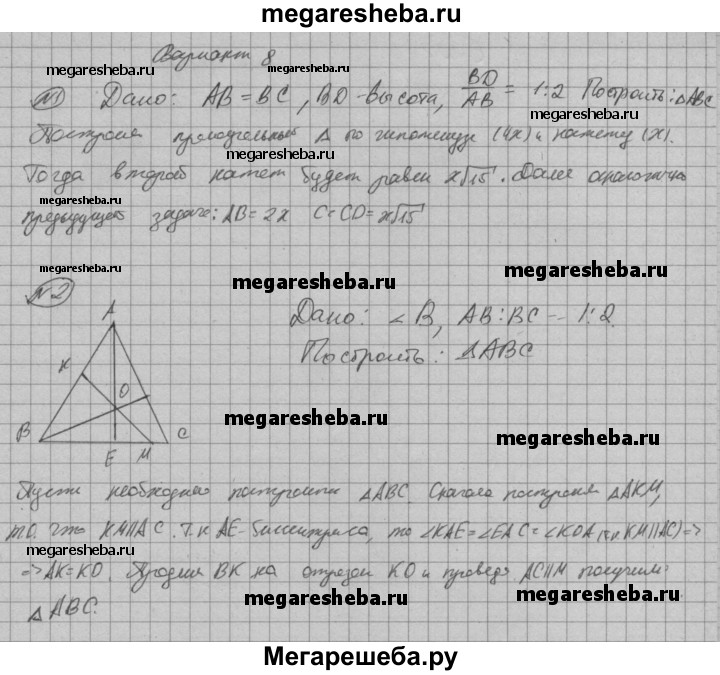 megaresheba.ru
Вариант 8
megaresheba.ru megaresheba.ru
№1 Дано: AB = BC, BD - высота, BD/AB = 1:2 Построить: ΔABC
megaresheba.ru
megaresheba.ru
Построим прямоугольный Δ по гипотенузе (4x) и катету (x).
megaresheba.ru
Тогда второй катет будет равен x√15. Далее аналогично
megaresheba.ru megaresheba.ru
предыдущей задаче: AB = 2x C = CD = x√15
megaresheba.ru megaresheba.ru megaresheba.ru
№2
Дано: ∠B, AB:BC - 1:2
Построить: ΔABC
A
K
O
B
E
M
C
megaresheba.ru megaresheba.ru
megaresheba.ru
Пусть необходимо построить ΔABC. Сначала построим ΔAKM,
т.о. что KM||AC. Т.к AE - биссектриса, то ∠KAE = ∠EAC = ∠KOA (т.к KM||AC) =>
megaresheba.ru
=> AK = KO. Продлив BK на отрезок KO и проведя AC||M получим
megaresheba.ru megaresheba.ru megaresheba.ru
ΔABC.
Мегарешеба.ру